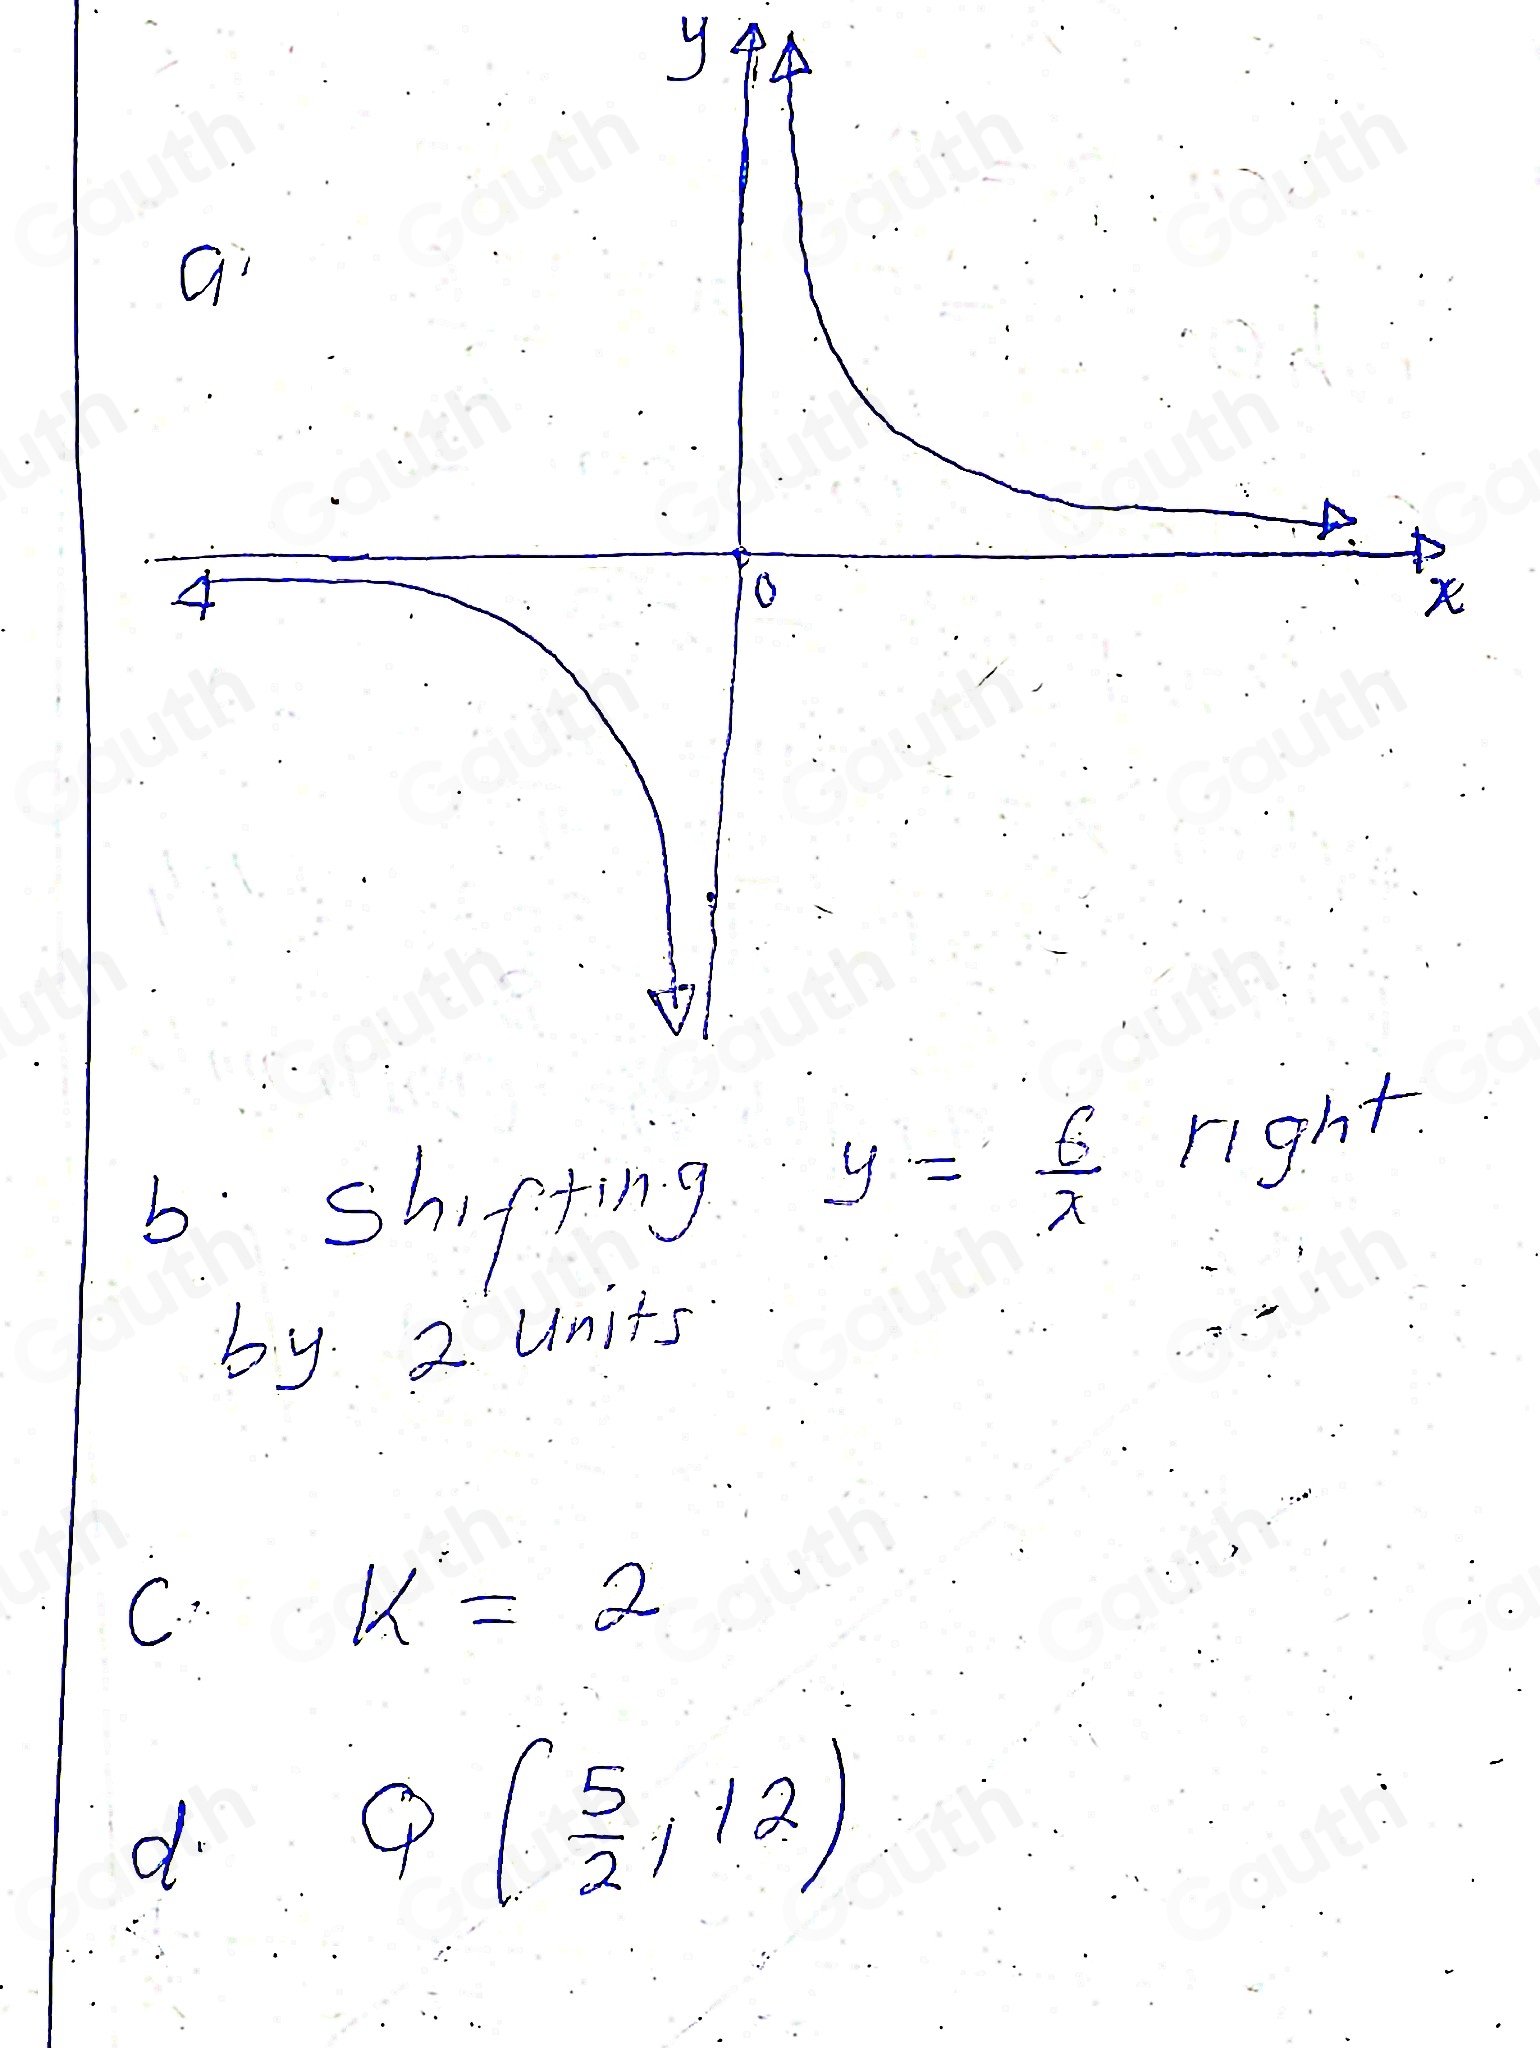 y
a.
0
x
b. Shifting y = 6/x right
by 2 units
c. K = 2
d. Q (5/2, 12)
Gauth